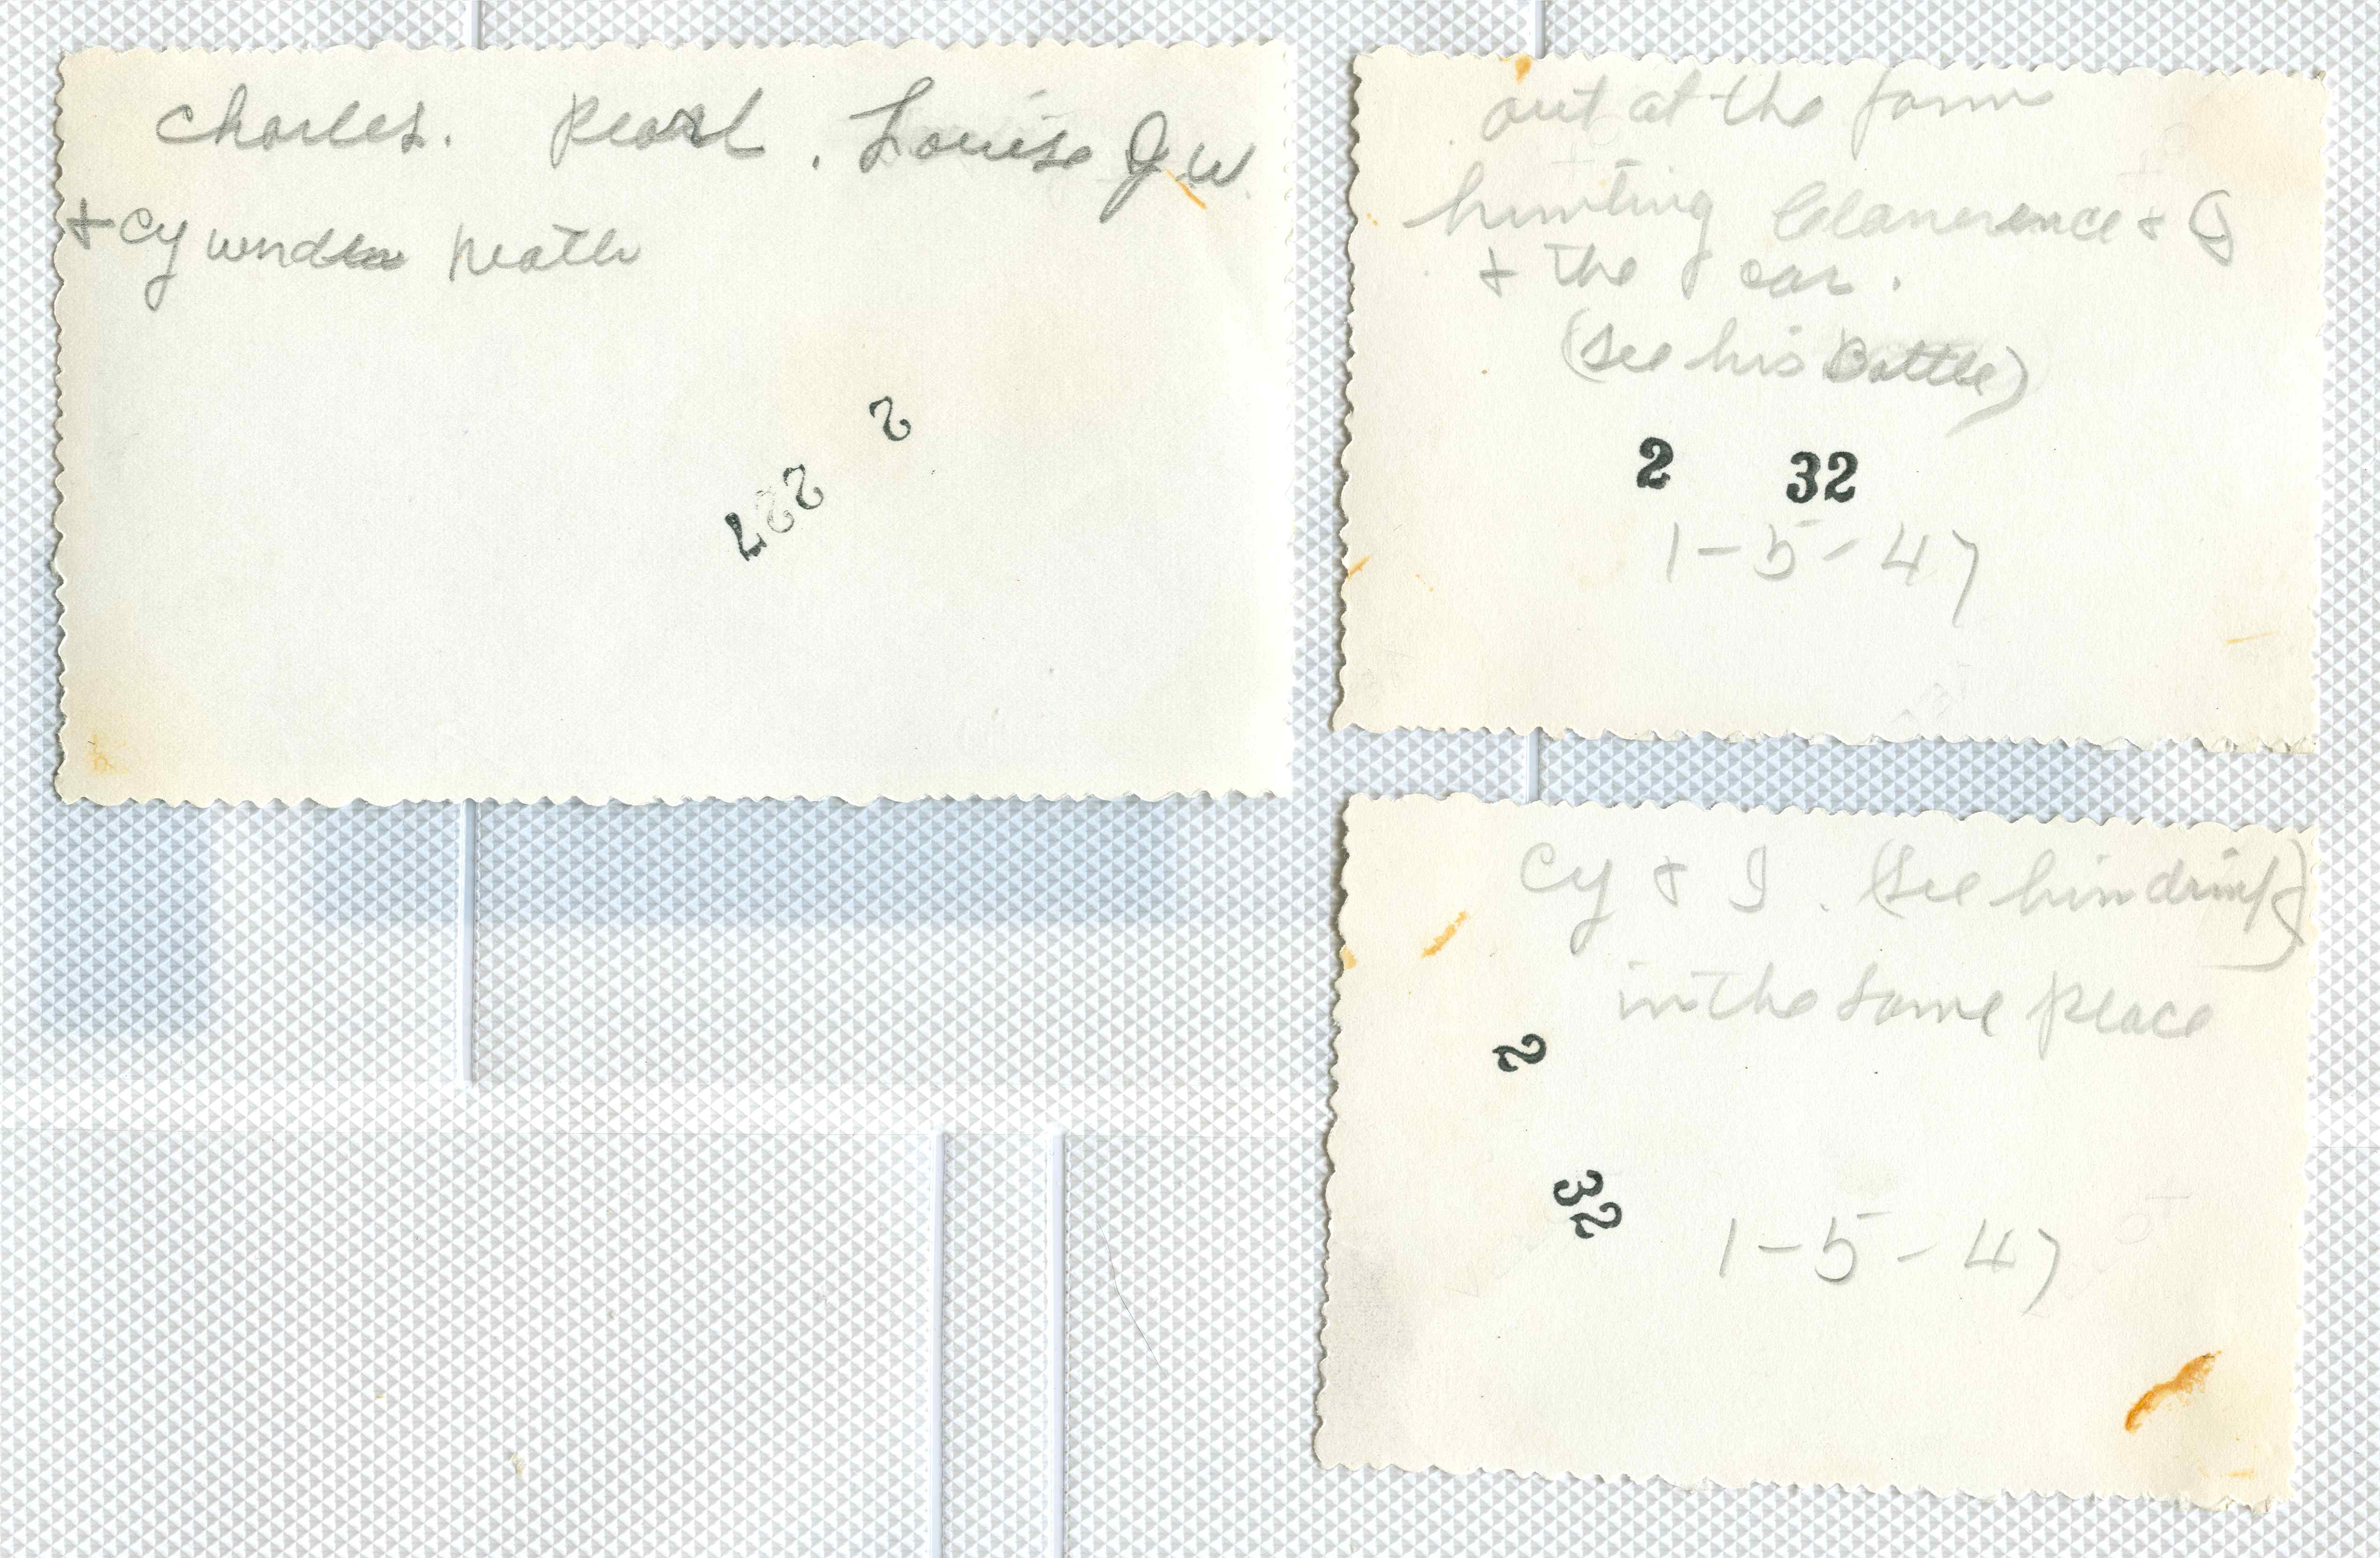 Charles. Pearl. Louise J.W.
+ Cy underneath
2
227
out at the farm
hunting Clarence + I
+ the car.
(see his Bottle)
2 32
1-5-47
Cy + I. (See him drink)
in the same place
2
32
1-5-47